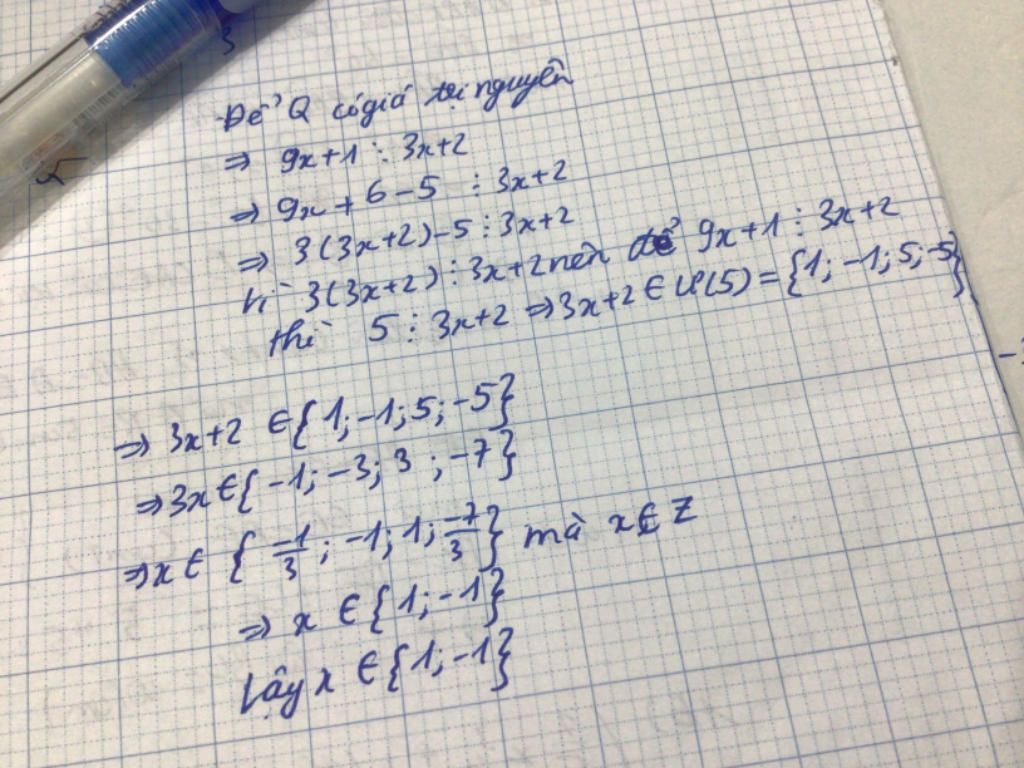 Để Q có giá trị nguyên
⇒ 9x+1 ⋮ 3x+2
⇒ 9x+6-5 ⋮ 3x+2
⇒ 3(3x+2)-5 ⋮ 3x+2
Vì 3(3x+2) ⋮ 3x+2 nên để 9x+1 ⋮ 3x+2
thì 5 ⋮ 3x+2 ⇒ 3x+2 ∈ Ư(5) = {1; -1; 5; -5}
⇒ 3x+2 ∈ {1; -1; 5; -5}
⇒ 3x ∈ {-1; -3; 3; -7}
⇒ x ∈ {-1/3; -1; 1; -7/3} mà x ∈ Z
⇒ x ∈ {1; -1}
Vậy x ∈ {1; -1}